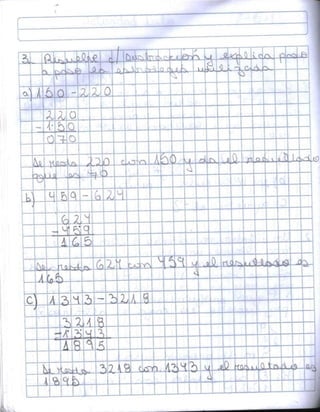 3. Resuelve c/ sustracción y explica paso
a paso la estrategia utilizada
a) 150 - 220
220
- 150
070
Se resta 220 con 150 y da el resultado
que es 70
b) 459 - 624
624
- 459
165
Se resta 624 con 459 y el resultado es
165
c) 1343 - 3218
3218
- 1343
1895
Se resta 3218 con 1343 y el resultado es
1895